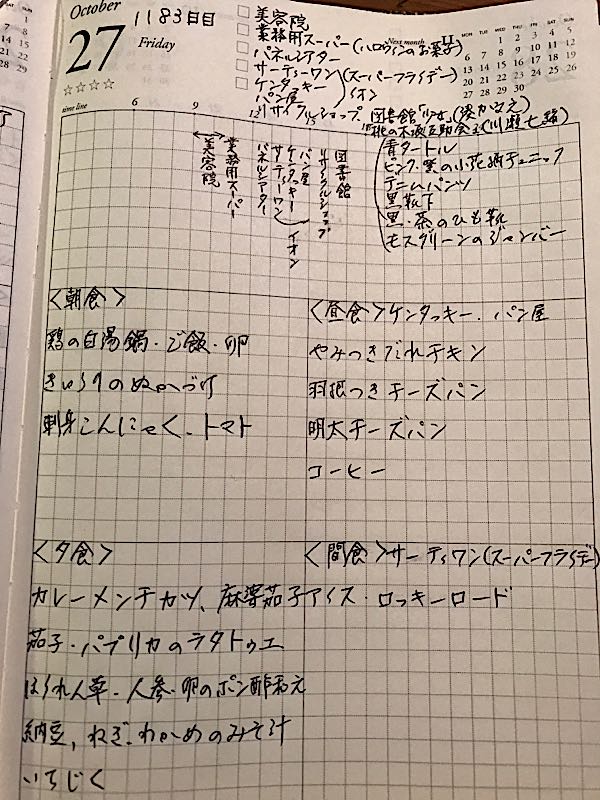 October
27
Friday
1183日目
美容院
業務用スーパー(ハロウィンのお菓子)
パネルシアター
サーティーワン(スーパーフライデー)
ケンタッキー
パン屋
イオン
リサイクルショップ
図書館「少女」(湊かなえ)
Next month
11
MON TUE WED THU FRI SAT SUN
1 2 3 4 5
6 7 8 9 10 11 12
13 14 15 16 17 18 19
20 21 22 23 24 25 26
27 28 29 30
time line
6
9
美容院
業務用スーパー
パネルシアター
サーティーワン
ケンタッキー
パン屋
イオン
リサイクルショップ
図書館
青タートル
ピンク・黒の小花柄チュニック
デニムパンツ
黒靴下
黒・茶のひも靴
モスグリーンのジャンパー
<朝食>
鶏の白湯鍋・ご飯・卵
きゅうりのぬかづけ
刺身こんにゃく、トマト
<昼食>ケンタッキー・パン屋
やみつきだれチキン
羽根つきチーズパン
明太チーズパン
コーヒー
<夕食>
カレーメンチカツ、麻婆茄子
茄子・パプリカのラタトゥエ
ほうれん草・人参・卵のポン酢和え
納豆, ねぎ・わかめのみそ汁
いちじく
<間食>サーティワン(スーパーフライデー)
アイス・ロッキーロード